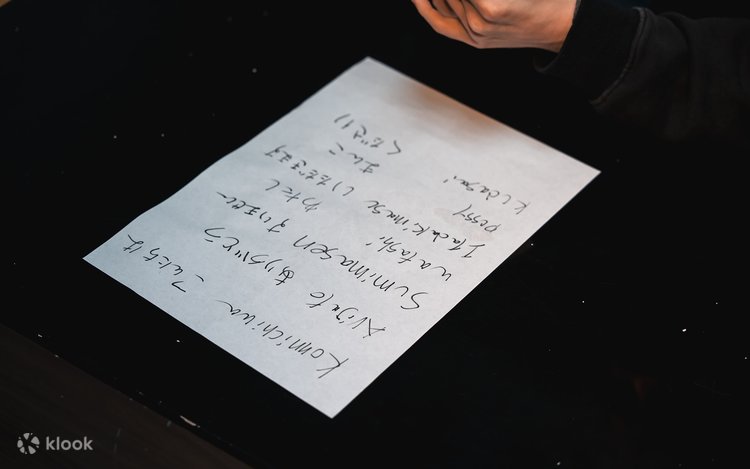 Konnichiwa こんにちは
Arigato ありがとう
Sumimasen すいません
watashi わたし
Itadakimase いただきます
まんこ
kudasai ください
klook